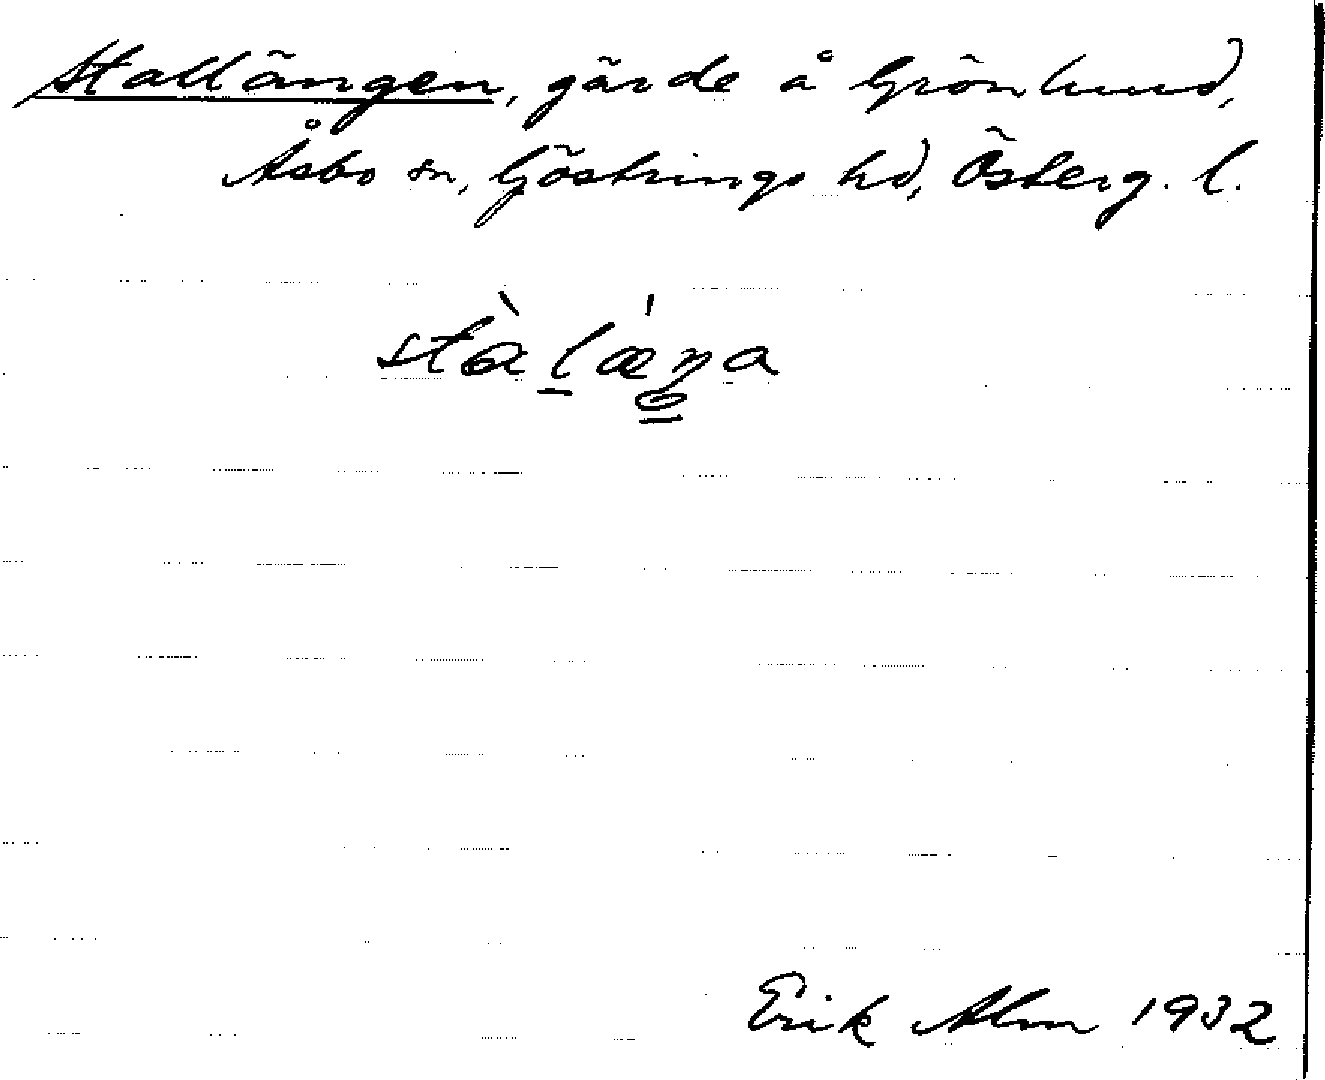 Stallängen, gärde å Grönlund,
Åsbo sn, Göstrings hd, Österg. l.
stàlæ̀ŋa
Erik Alm 1932